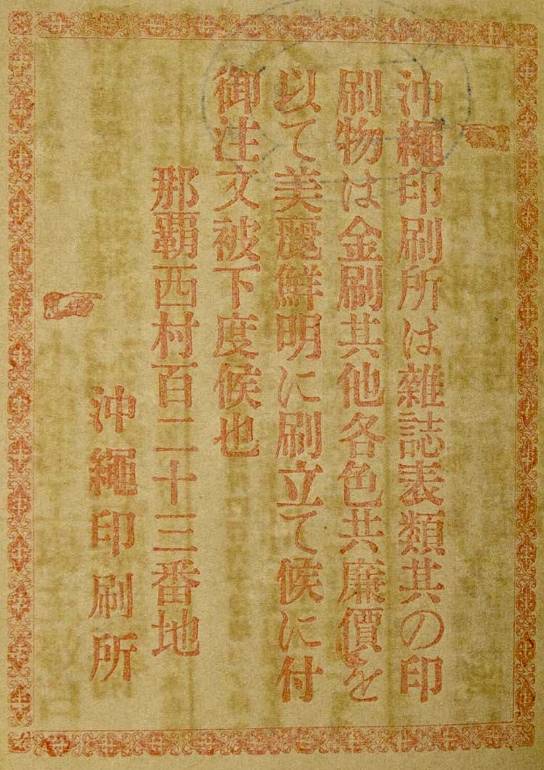 沖繩印刷所は雜誌表類其の印
刷物は金刷其他各色共廉價を
以て美麗鮮明に刷立て候に付
御注文被下度候也
那覇西村百二十三番地
沖繩印刷所